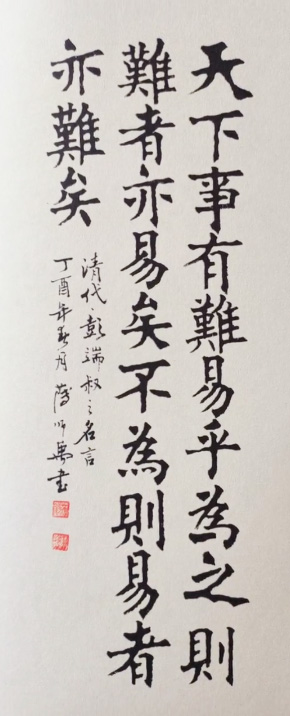 天下事有難易乎為之則
難者亦易矣不為則易者
亦難矣
清代彭端叔之名言
丁酉年 月 書